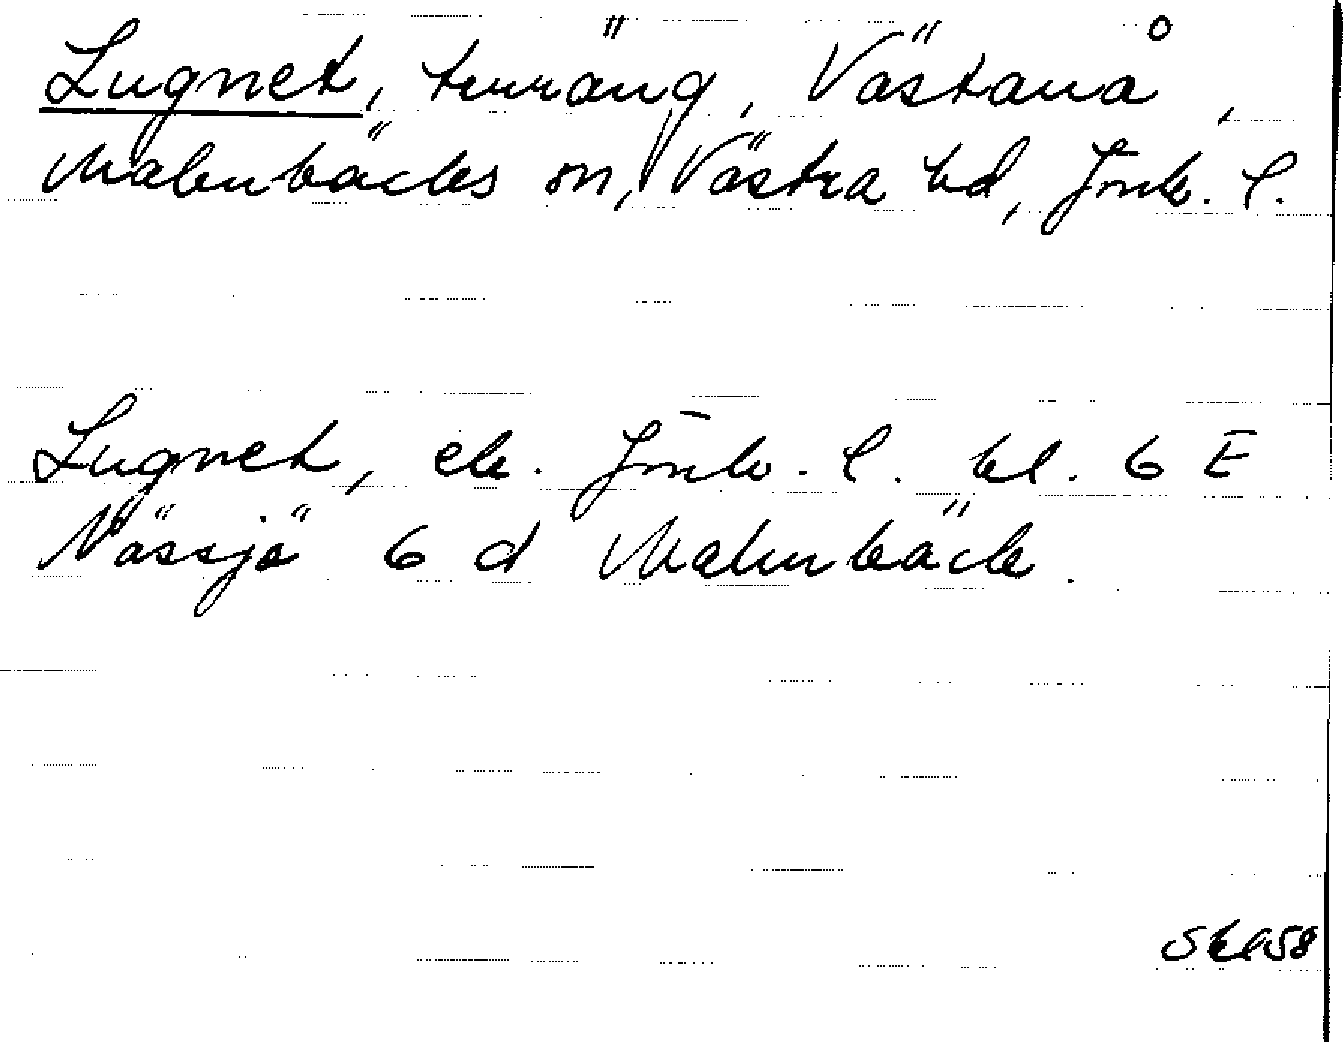 Lugnet, terräng, Västanå,
Malmbäcks sn, Västra hd, Jönk. l.
Lugnet, ek. Jönk. l. bl. 6 E
Nässjö 6 d Malmbäck.